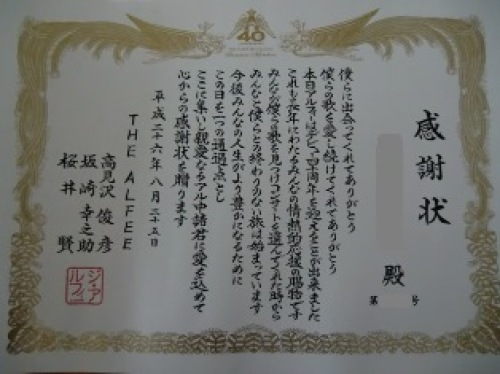 40
感謝状
殿
第 号
僕らに出会ってくれてありがとう
僕らの歌を愛し続けてくれてありがとう
本日アルフィーはデビュー四十周年を迎えることが出来ました
これも長年にわたるみんなの情熱的応援の賜物です
みんなが僕らの歌を見つけコンサートを選んでくれた時から
みんなと僕らとの終わりのない旅は始まっています
今後みんなの人生がより豊かになるために
この日を一つの通過点とし
ここに集いし親愛なるアル中諸君に愛を込めて
心からの感謝状を贈ります
平成二十六年八月二十五日
THE ALFEE
高見沢 俊彦
坂崎 幸之助
桜井 賢
ジ・アルフィー